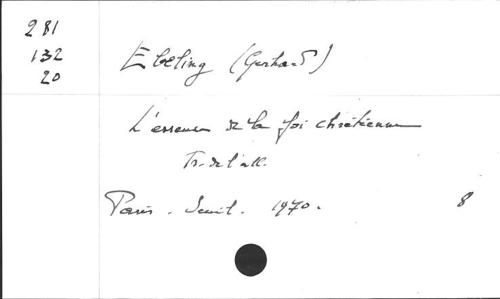 281
132
20
Ebeling (Gerhard)
L'essence de la foi chrétienne
Tr. de l'all.
Paris. Seuil. 1970. 8